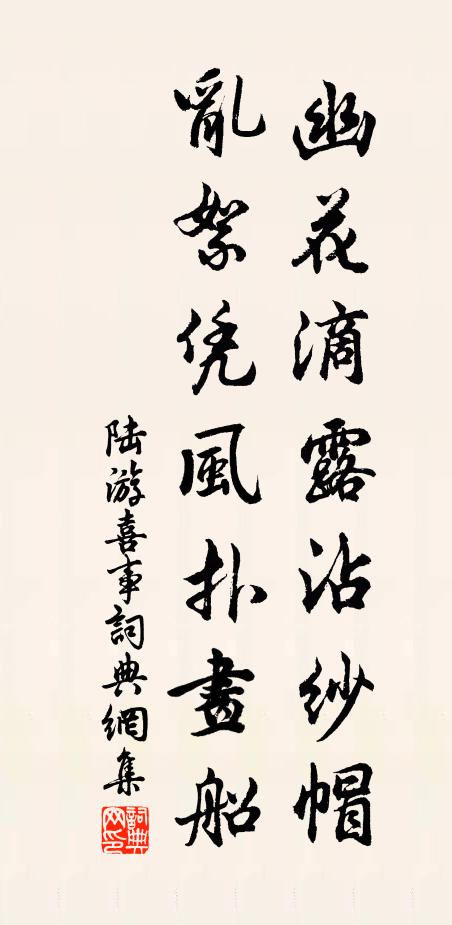 幽花滴露沾紗帽
亂絮凭風扑畫船
陆游喜事詞典網集
詞典网印